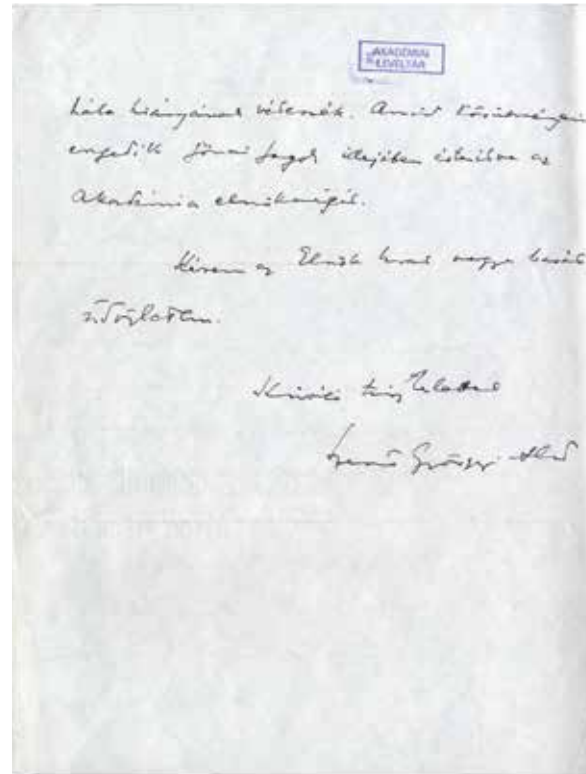 AKADÉMIAI
LEVÉLTÁR
hála hiányának vélenék. Amint körülményeim
engedik jönni fogok idejében értesítve az
Akadémia elnökségét.
Kérem az Elnök Urat vegye baráti
üdvözletem.
Kiváló tisztelettel
Szent Györgyi Albert